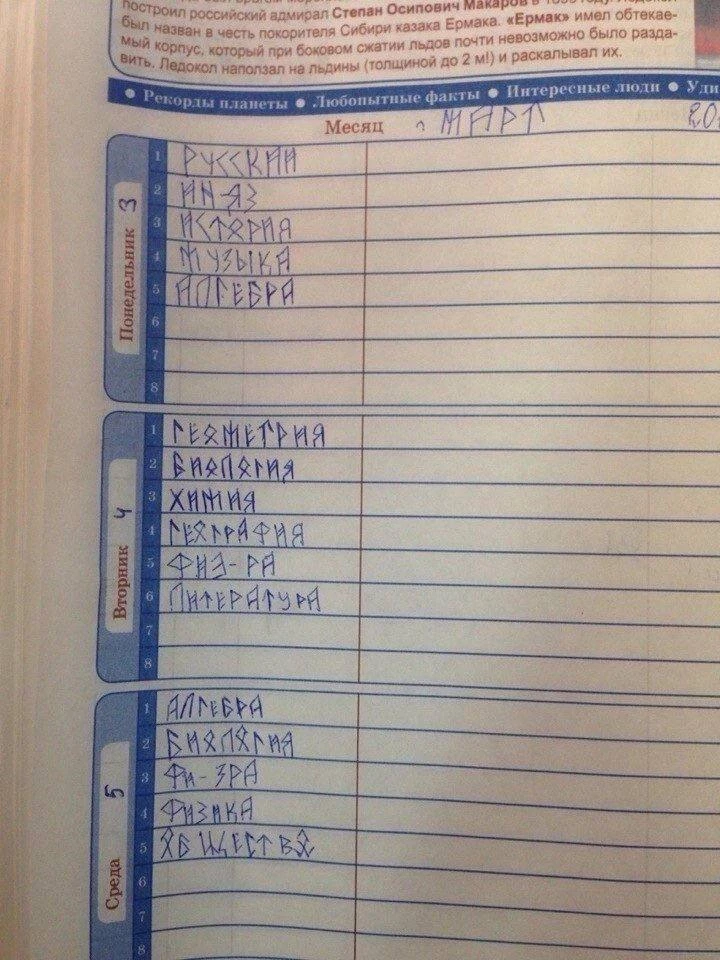 построил российский адмирал Степан Осипович Макаров в
был назван в честь покорителя Сибири казака Ермака. «Ермак» имел обтекае-
мый корпус, который при боковом сжатии льдов почти невозможно было разда-
вить. Ледокол наползал на льдины (толщиной до 2 м!) и раскалывал их.
• Рекорды планеты • Любопытные факты • Интересные люди • Уди
Месяц МАРТ 20
Понедельник 3
1 РУССКИЙ
2 ИН-ЯЗ
3 ИСТОРИЯ
4 МУЗЫКА
5 АЛГЕБРА
6
7
8
Вторник 4
1 ГЕОМЕТРИЯ
2 БИОЛОГИЯ
3 ХИМИЯ
4 ГЕОГРАФИЯ
5 ФИЗ-РА
6 ЛИТЕРАТУРА
7
8
Среда 5
1 АЛГЕБРА
2 БИОЛОГИЯ
3 ФИ-ЗРА
4 ФИЗИКА
5 ОБЩЕСТВО
6
7
8